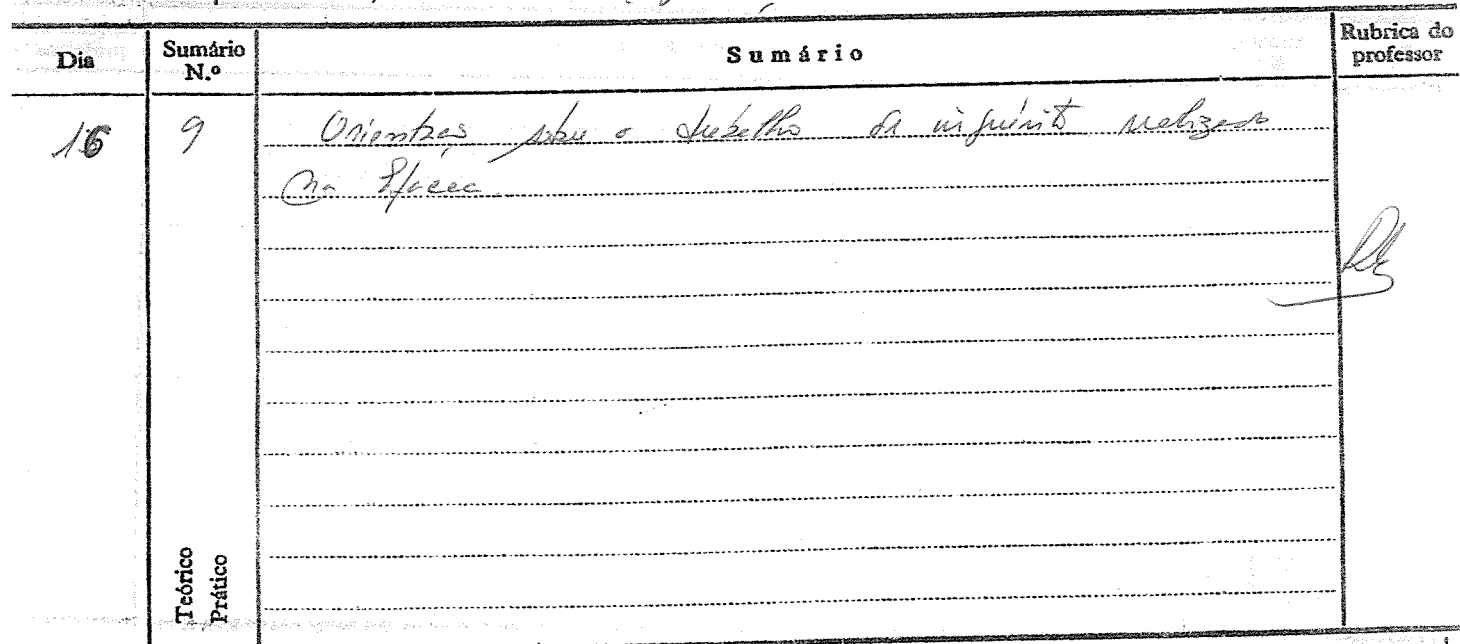 Dia
Sumário N.º
Sumário
Rubrica do professor
16
9
Orientação sobre o trabalho de inquérito realizado
na
Teórico
Prático